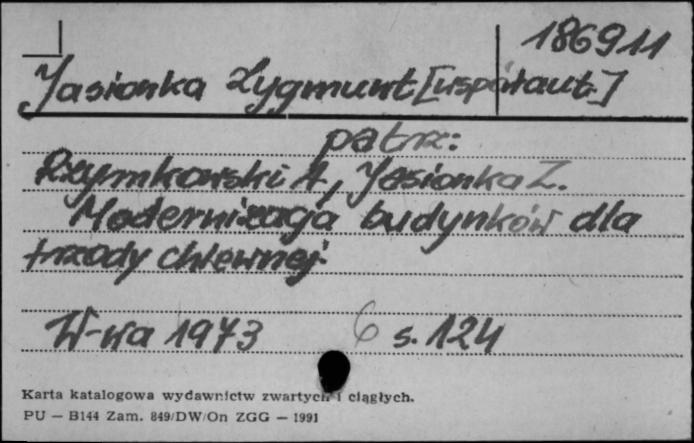 186911
Jasionka Zygmunt [współaut.]
patrz:
Rzymkowski A, Jasionka Z.
Modernizacja budynków dla
trzody chlewnej
W-wa 1973 6 s. 124
Karta katalogowa wydawnictw zwartych i ciągłych.
PU — B144 Zam. 849/DW/On ZGG — 1991